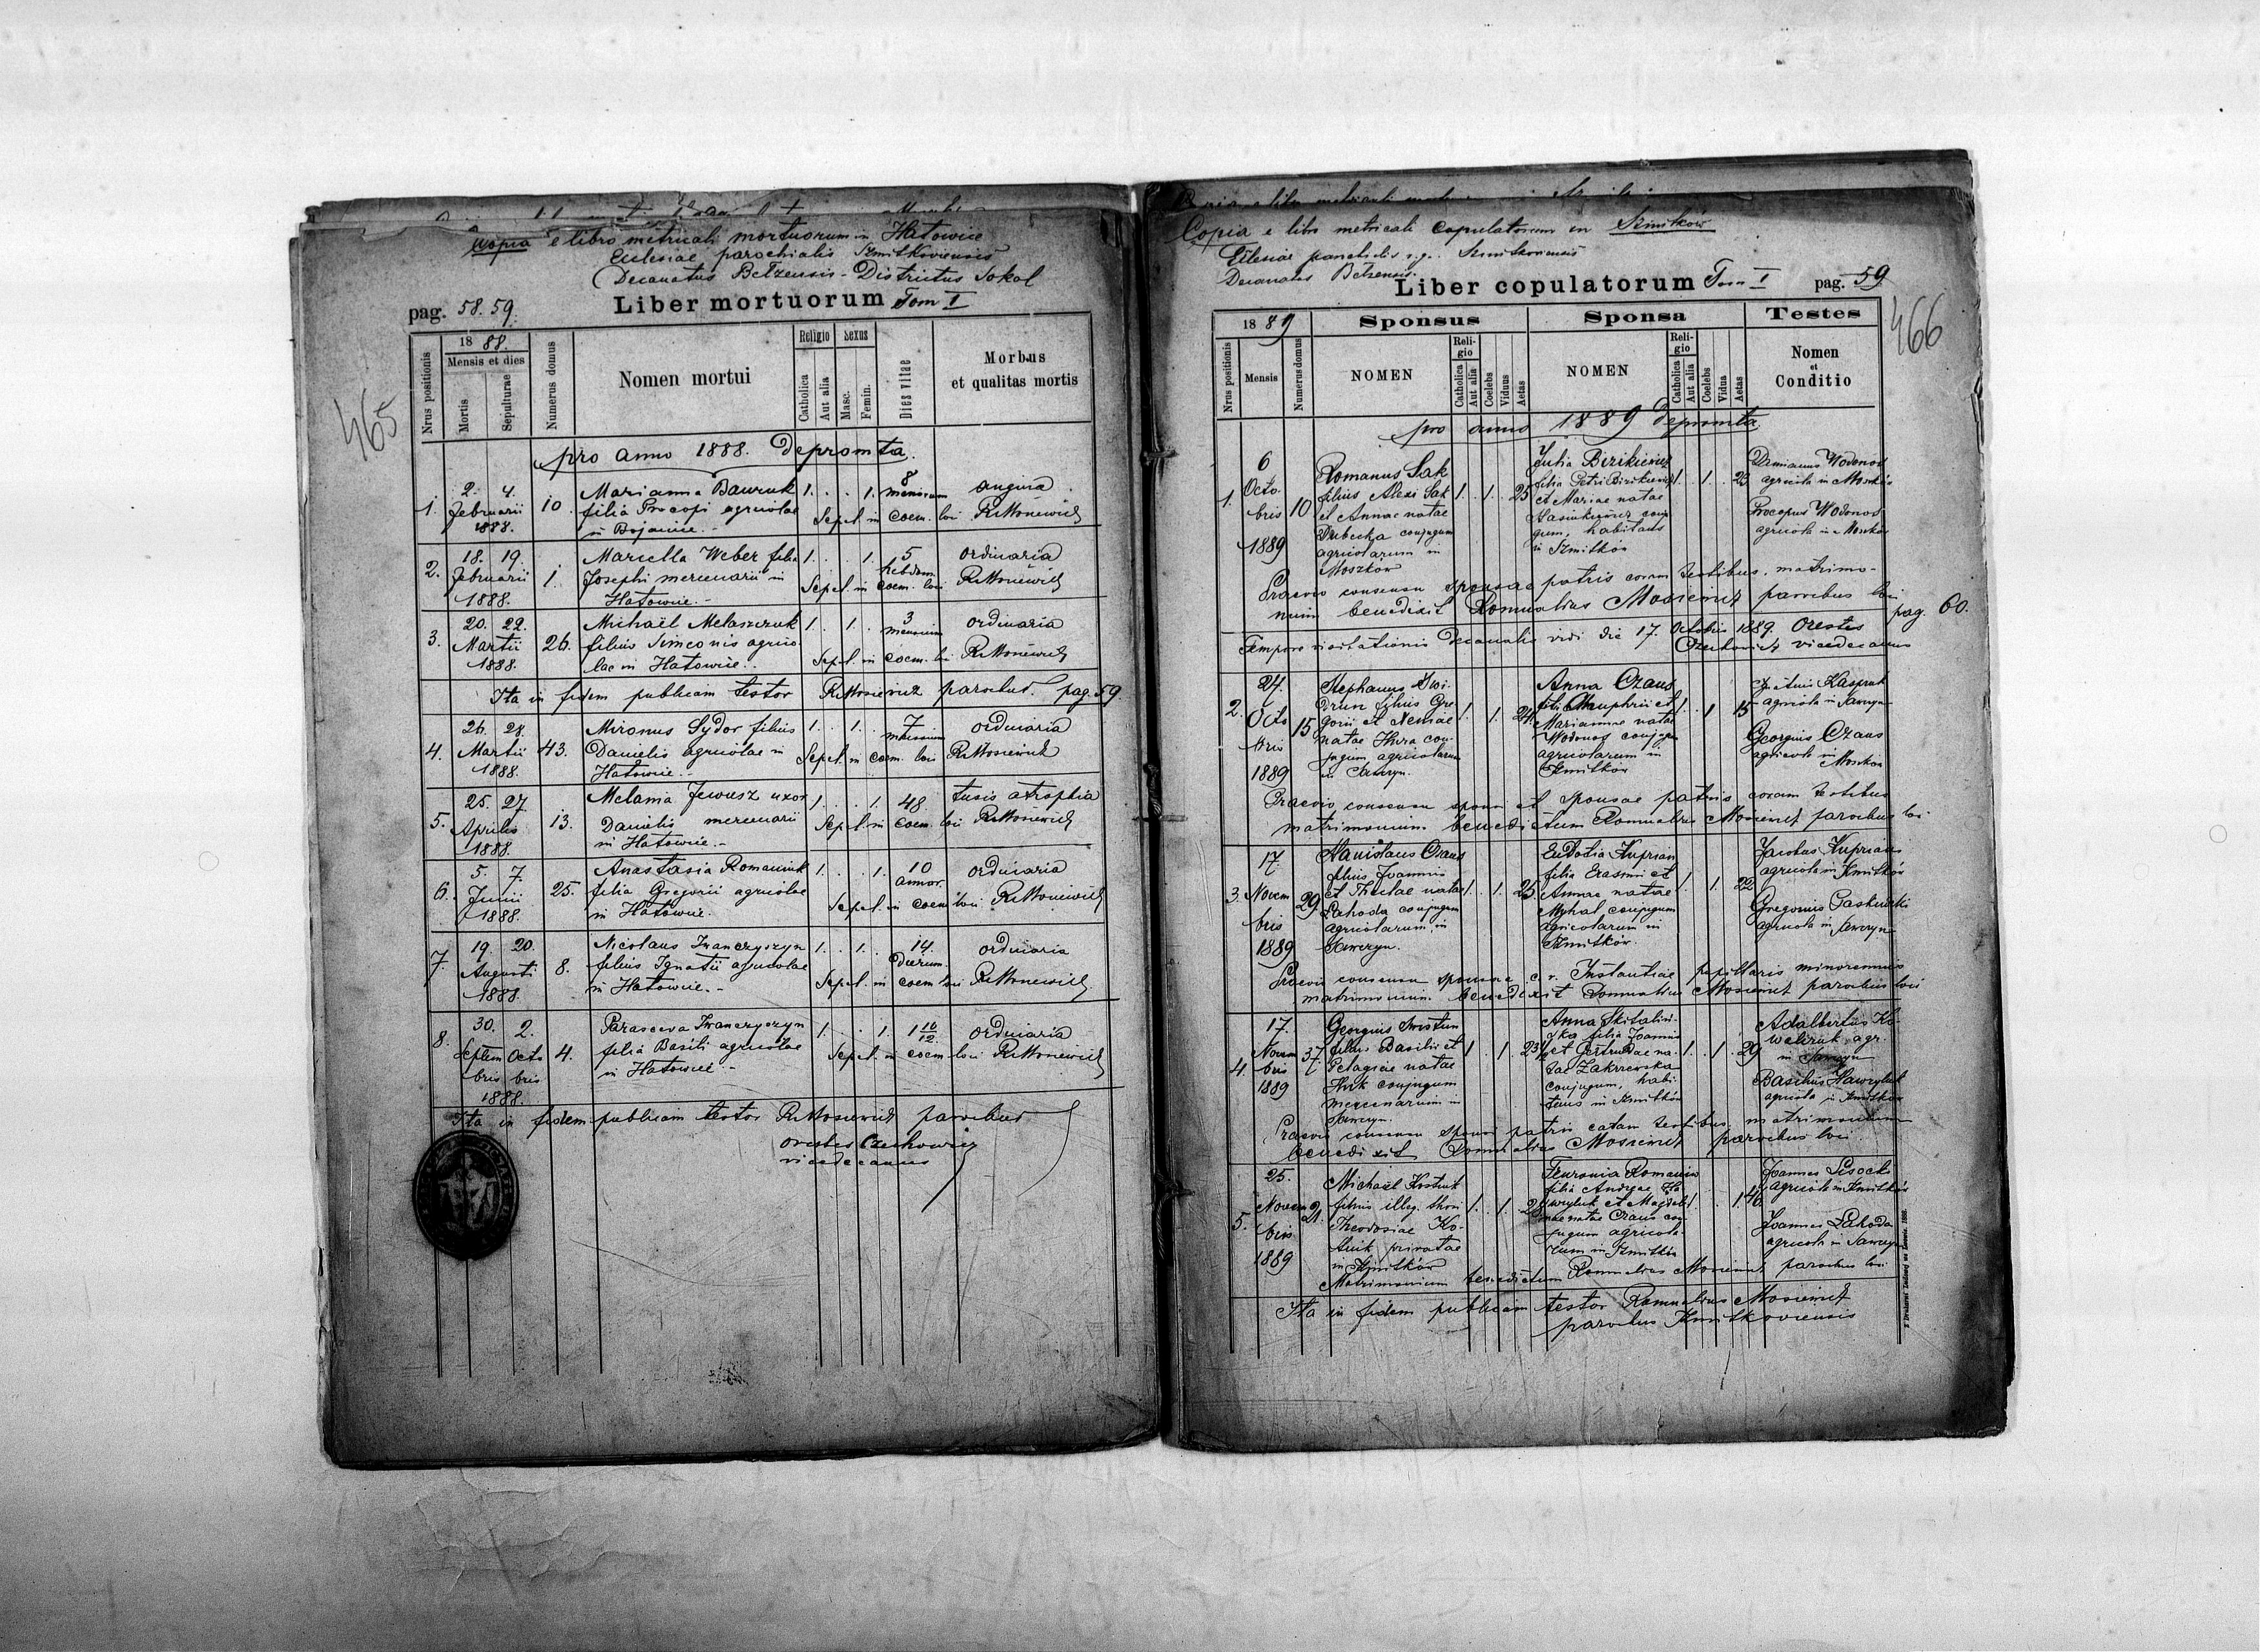 465
Copia e libro metricali mortuorum in Hatowice
Ecclesiae parochialis Szmitkoviensis
Decanatus Betzensis - Districtus Sokal
pag. 58. 59. Liber mortuorum Tom I
Nrus positionis
1888.
Mensis et dies
Mortis
Sepulturae
Numerus domus
Nomen mortui
Religio
Catholica
Aut alia
Sexus
Masc.
Femin.
Dies vitae
Morbus
et qualitas mortis
pro anno 1888. Depromta.
1. 2. 4. Februarii 1888. 10.
Marianna Bawruk
filia Procopi agricolae
in Bojanice.-
1. . . 1. 8 mensium angina
Sepel. in coem. loci RMosiewicz
2. 18. 19. Februarii 1888. 1.
Marcella Weber filia
Josephi mercenarii in
Hatowice.-
1. . . 1. 5 hebdom. ordinaria
Sepel. in coem. loci RMosiewicz
3. 20. 22. Martii 1888. 26.
Michaël Melaszczuk
filius Simeonis agrico-
lae in Hatowice.
1. . 1. . 3 mensium ordinaria
Sepel. in coem. loci RMosiewicz
Ita in fidem publicam testor RMosiewicz parochus. pag. 59
4. 26. 28. Martii 1888. 43.
Mironus Sydor filius
Danielis agricolae in
Hatowice.-
1. . 1. . 7 mensium ordinaria
Sepel. in coem. loci RMosiewicz
5. 25. 27. Aprilis 1888. 13.
Melania Jewusz uxor
Danielis mercenarii
in Hatowice.-
1. . . 1. 48. tusis atrophia
Sepel. in coem. loci RMosiewicz
6. 5. 7. Junii 1888. 25.
Anastasia Romaniuk
filia Gregorii agricolae
in Hatowice.
1. . . 1. 10 annor. ordinaria
Sepel. in coem. loci RMosiewicz
7. 19. 20. Augusti 1888. 8.
Nicolaus Iwanczyszyn
filius Ignatii agricolae
in Hatowice.-
1. . 1. . 14. dierum. ordinaria
Sepel. in coem. loci RMosiewicz
8. 30. 2. Septem Octo bris bris 1888. 4.
Parasceva Iwanczyszyn
filia Basili agricolae
in Hatowice.-
1. . . 1. 1 10/12. ordinaria
Sepel. in coem. loci RMosiewicz
Ita in fidem publicam testor RMosiewicz parochus
Orestes Czechowicz
vicedecanus
Copia e libro metricali copulatorum in Szmitków
Eclesiae parochialis r. g. Szmitkoviensis
Decanatus Betzensis.
Liber copulatorum Tom I pag. 59
466
Nrus positionis
1889
Mensis
Numerus domus
Sponsus
NOMEN
Religio
Catholica
Aut alia
Coelebs
Viduus
Aetas
Sponsa
NOMEN
Religio
Catholica
Aut alia
Coelebs
Vidua
Aetas
Testes
Nomen
et
Conditio
pro anno 1889 depromta
1. 6 Octo bris 1889 10
Romanus Sak
filius Alexi Sak
et Annae natae
Dubecka conjugum
agricolarum in
Moszków
1. . 1. . 25
Julia Birikiewicz
filia Petri Birikiewicz
et Mariae natae
conju
gum, habitans
in Szmitków
1. . 1. . 23
Demianus Wodonos
agricola in Moszków
Procopus Wodonos
agricola in Moszków
Praevio consensu sponsae patris coram testibus matrimo-
nium benedixit Romualdus Mosiewicz parochus loci
pag. 60.
Tempore visitationis Decanalis vidi die 17. Octobris 1889. Orestes
Czechowicz vicedecanus
2. 24. Octo bris 1889 15
Stephanus Swi-
drun filius Gre
gorii et Neniae
natae Hura con-
jugum agricolarum
in Sawczyn.
1. . 1. . 24.
Anna Czaus
filia Onuphrii et
Mariannae natae
Wodonos conjugum
agricolarum in
Szmitków
1. . 1 15
Justinus Kaspruk
agricola in Sawczyn
Georgius Czaus
agricola in
Moszków
Praevio consensu sponsi et sponsae patris coram testibus
matrimonium benedictum Romualdus Mosiewicz parochus loci.
3. 17. Novem bris 1889 29
Stanislaus Czaus
filius Joannis
et Theclae natae
Lahoda conjugum
agricolarum in
Sawczyn.
1. . 1. . 25
Eudotia Kuprian
filia Erasmi et
Annae natae
Myhal conjugum
agricolarum in
Szmitków.
1. . 1. . 22
Jacobus Kuprian
agricola in Szmitków
Gregorius
agricola in Sawczyn
Praevio consensu sponsae c. r. Instantiae pupillaris minorennis
matrimonium benedixit Romualdus Mosiewicz parochus loci
4. 17. Novem bris 1889 37
Georgius Swistun
filius Basilii et
Pelagiae natae
Huk conjugum
mercenarium in
Sawczyn.
1. . 1. . 23
Anna Skitalin-
ska filia Joannis
et Gertrudae na-
tae Zakrzewska
conjugum, habi-
tans in Szmitków
1. . 1. . 29
Adalbertus Ko-
walczuk agr.
in Sawczyn
Basilius Hawryluk
agricola in Szmitków
Praevio consensu sponsi patris coram testibus matrimonium
benedixit Romualdus Mosiewicz parochus loci.
5. 25. Novem bris 1889 21.
Michaël Kostiuk
filius illeg. thori
Theodosiae Ko-
stiuk privatae
in Szmitków
1. . 1. . 28
Feuronia Romaniw
filia Andreae Ha
wryluk et Magdale
nae natae Czaus con
jugum agricola-
rum in Szmitków
1. . . 1. 46.
Joannes Lisocki
agricola in Szmitków
Joannes Lahoda
agricola in Sawczyn
Matrimonium benedictum Romualdus Mosiewicz parochus loci
Ita in fidem publicam testor Romualdus Mosiewicz
parochus Szmitkoviensis